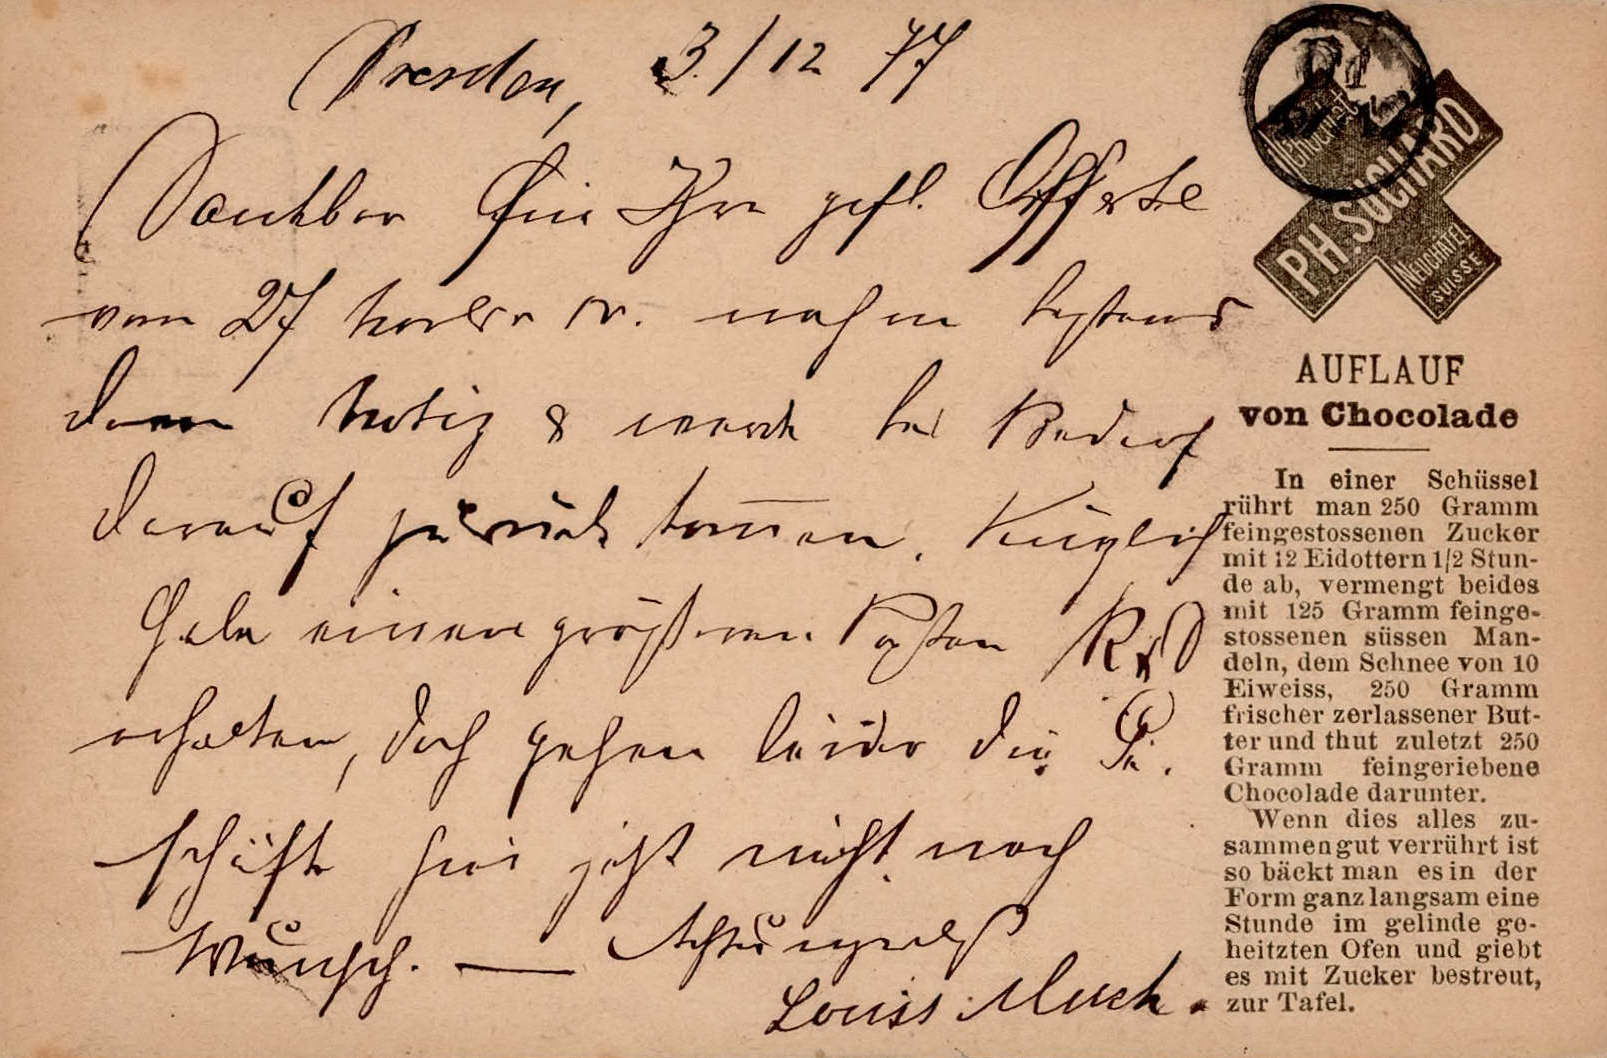 Dresden, 3/12 77
Dankbar für Ihre gefl. Offerte
vom 27 Novbr cr. nahm bestens
davon Notiz & werde bei Bedarf
darauf zurück kommen. Kürzlich
habe einen größeren Posten
erhalten, doch gehen leider die Ge-
schäfte hier jetzt nicht nach
Wunsch. — Achtungsvollst
Louis
Chocolat
PH. SUCHARD
NEUCHÂTEL
SUISSE
AUFLAUF
von Chocolade
In einer Schüssel
rührt man 250 Gramm
feingestossenen Zucker
mit 12 Eidottern 1/2 Stun-
de ab, vermengt beides
mit 125 Gramm feinge-
stossenen süssen Man-
deln, dem Schnee von 10
Eiweiss, 250 Gramm
frischer zerlassener But-
ter und thut zuletzt 250
Gramm feingeriebene
Chocolade darunter.
Wenn dies alles zu-
sammengut verrührt ist
so bäckt man es in der
Form ganz langsam eine
Stunde im gelinde ge-
heitzten Ofen und giebt
es mit Zucker bestreut,
zur Tafel.